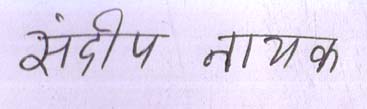 संदीप नायक